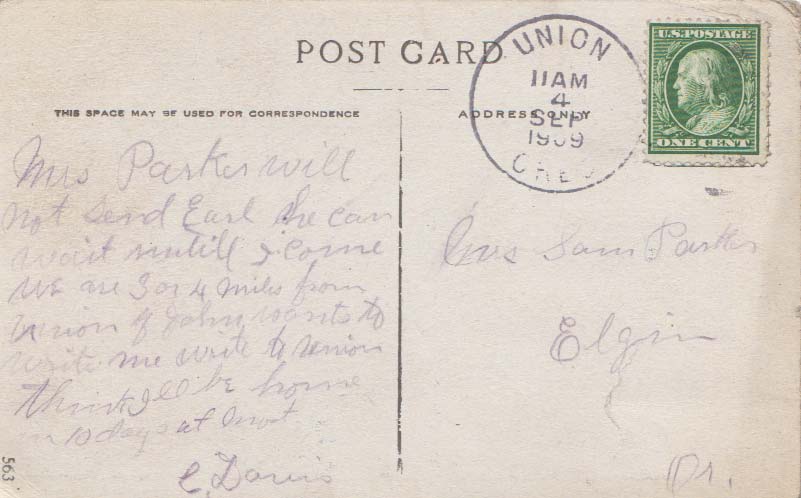 POST CARD
THIS SPACE MAY BE USED FOR CORRESPONDENCE
ADDRESS ONLY
UNION
11AM
4
SEP
1909
OREG
U.S. POSTAGE
ONE CENT
Mrs Parker will
not send Earl he can
wait untill I come
We are 3 or 4 miles from
Union if John wants to
write me write to Union
think Ill be home
in 10 days at most
C. Davis
Mrs Sam Parker
Elgin
Or.
563